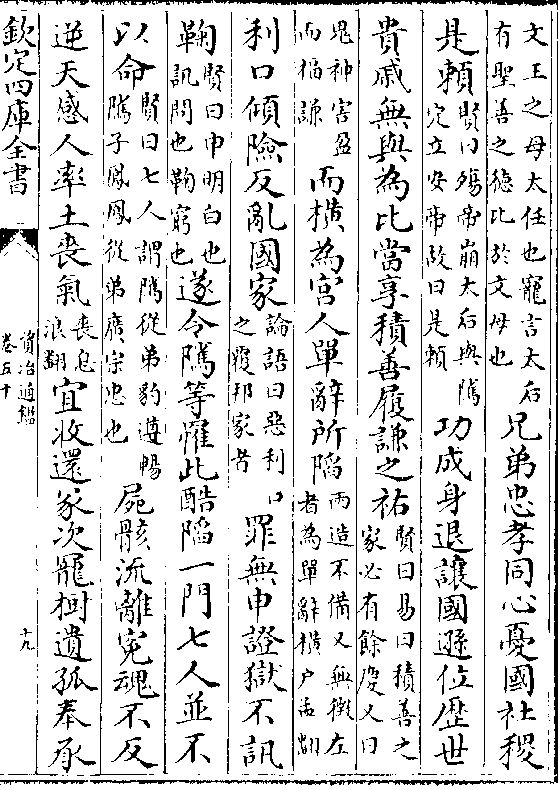 文王之母太任也寵言太后
有聖善之德比於文母也
兄弟忠孝同心憂國社稷
是賴
賢曰殤帝崩太后與隲
定立安帝故曰是賴
功成身退讓國遜位歴世
貴戚無與為比當享積善履謙之祐
賢曰易曰積善之
家必有餘慶又曰
鬼神害盈
而福謙
而橫為宮人單辭所陷
兩造不備又無徴左
者為單辭橫户孟翻
利口傾險反亂國家
論語曰惡利口
之覆邦家者
罪無申證獄不訊
鞠
賢曰申明白也
訊問也鞠窮也
遂令隲等罹此酷陷一門七人並不
以命
賢曰七人謂隲從弟豹遵暢
隲子鳳鳳從弟廣宗忠也
屍骸流離寃魂不反
逆天感人率土喪氣
喪息
浪翻
宜收還冢次寵樹遺孤奉承
欽定四庫全書
資治通鑑
卷五十
十九